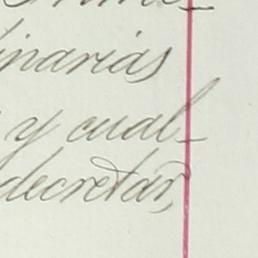 inarias
y cual-
decretar,